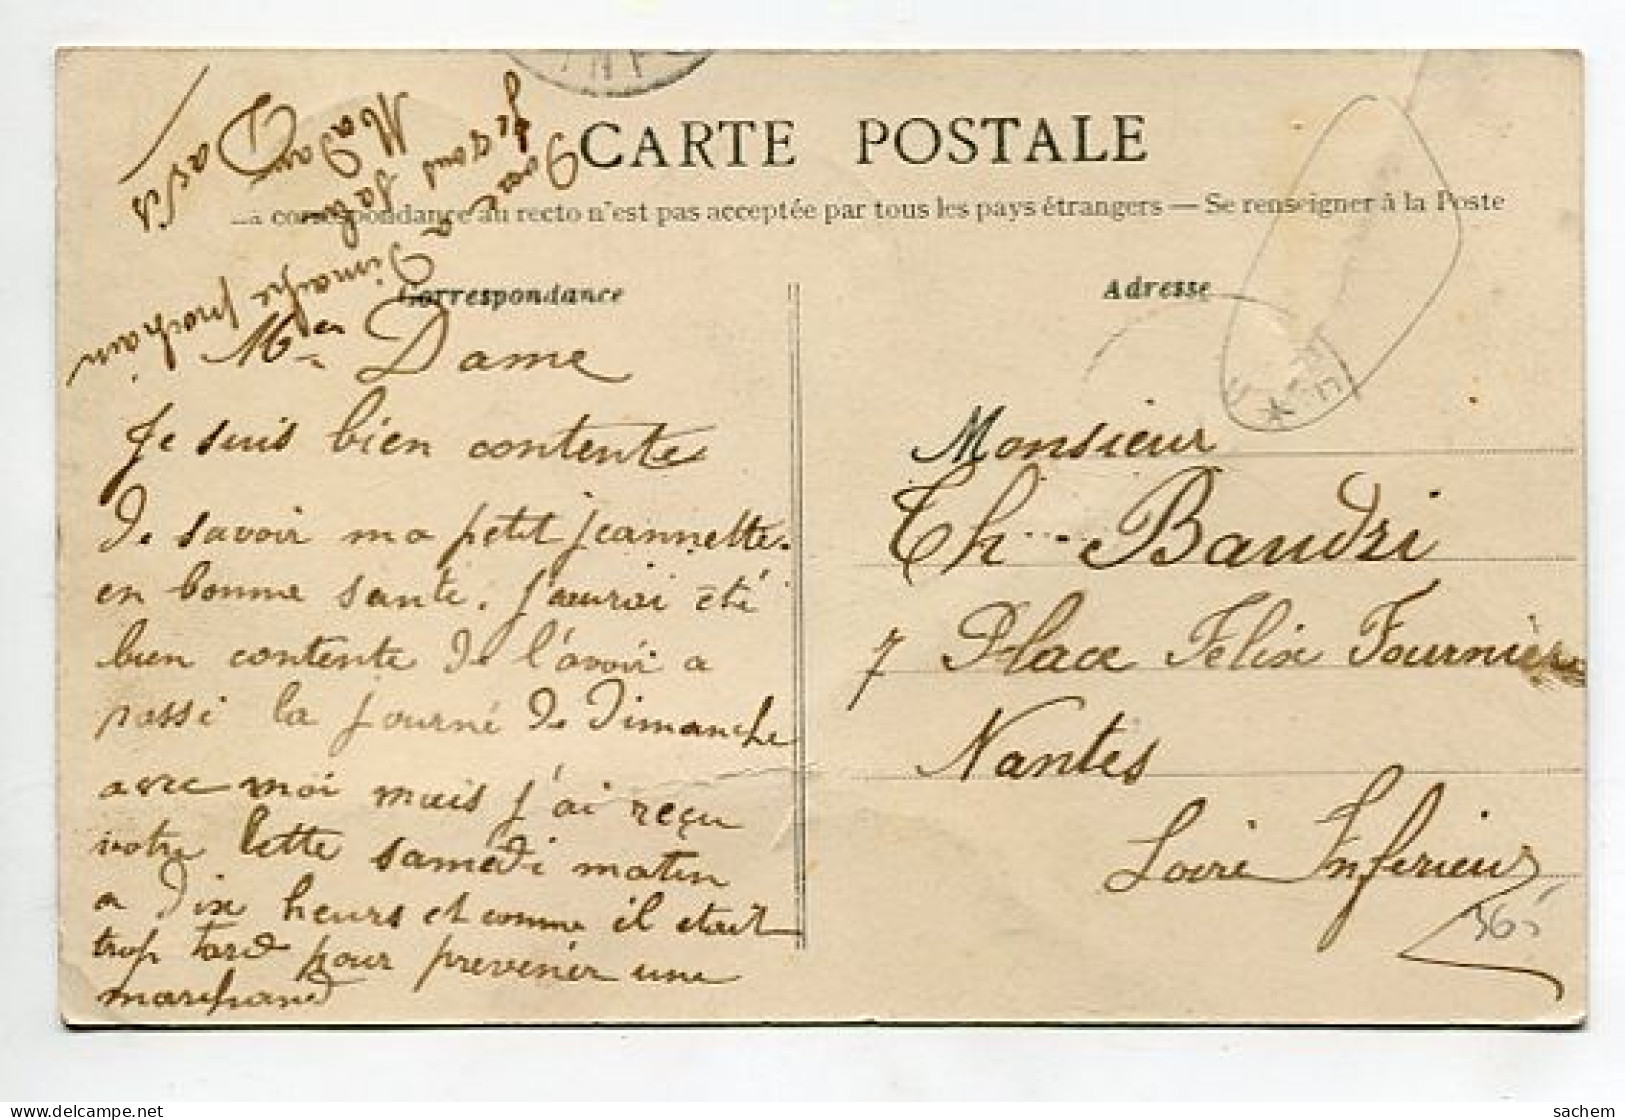 CARTE POSTALE
La correspondance au recto n'est pas acceptée par tous les pays étrangers — Se renseigner à la Poste
Correspondance
Adresse
Dame
Je suis bien contente
de savoir ma petit jeannette
en bonne santé. J'aurai été
bien contente de l'avoir a
passé la journé de Dimanche
avec moi mais j'ai reçu
votre lette samedi matin
a dix heurs et comme il etait
trop tard pour prevenir une
marchand
Madame
Dimanche prochain
Monsieur
Th - Baudri
7 Place Félix Fournier
Nantes
Loire Inferieur
365
sachem